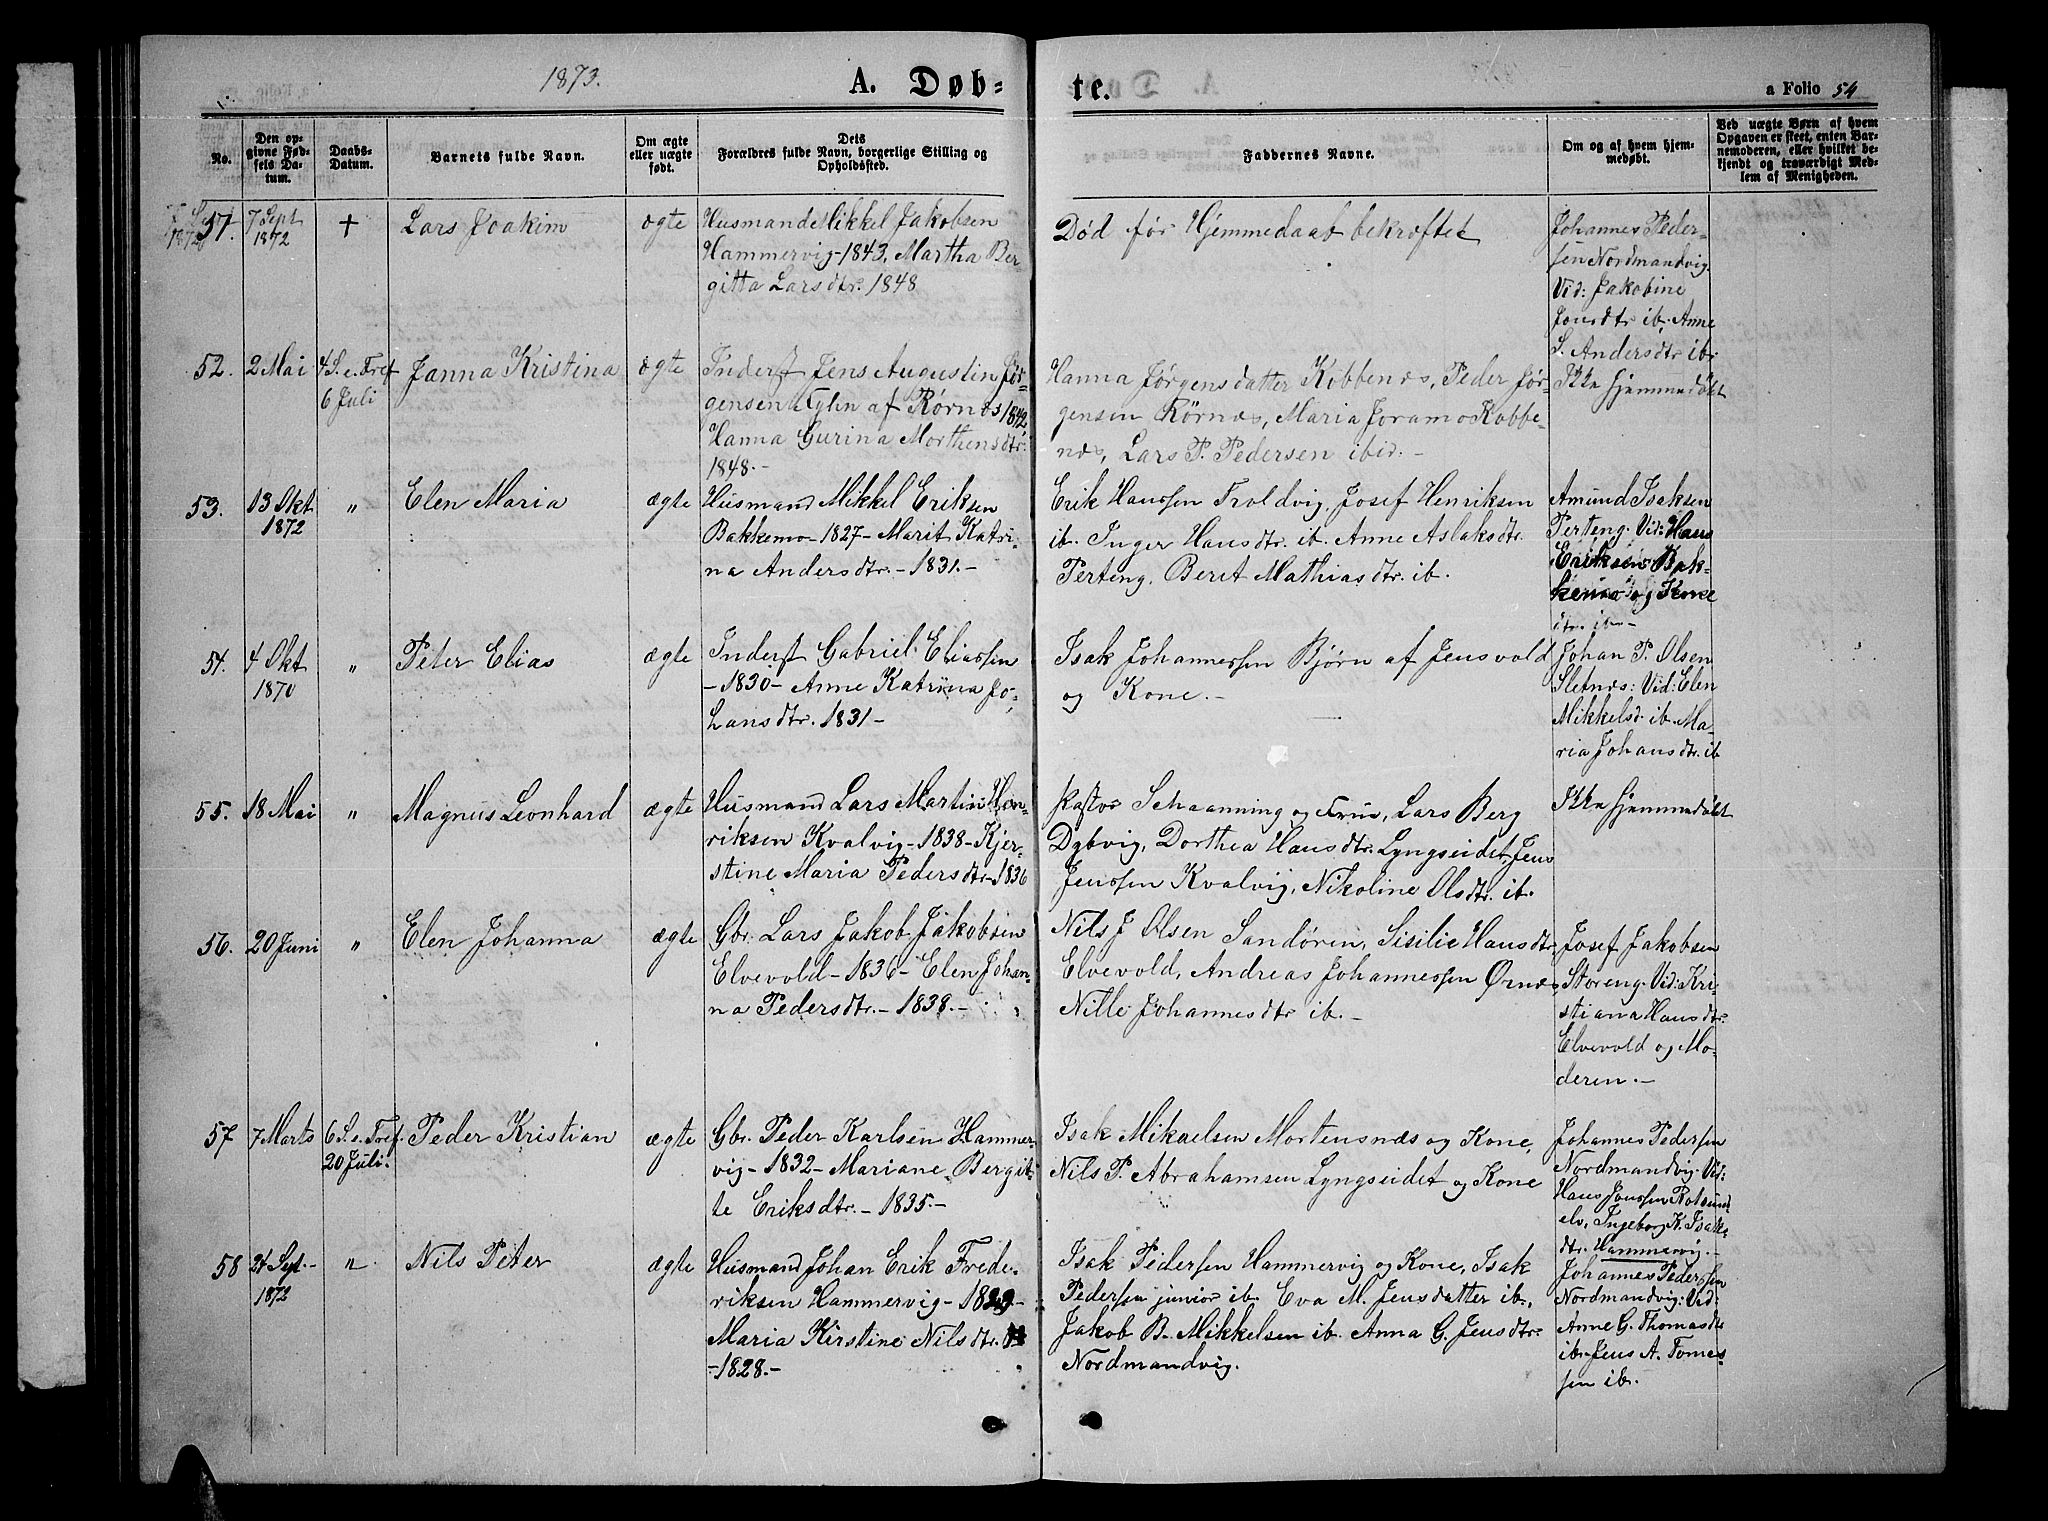 1873.
A. Døb-
te.
a Folio 54
No.
Den op-
givne Fød-
sels Da-
tum.
Daabs-
Datum.
Barnets fulde Navn.
Om ægte
eller uægte
født.
Dets
Forældres fulde Navn, borgerlige Stilling og
Opholdssted.
Faddernes Navne.
Om og af hvem hjem-
medøbt.
Ved uægte Børn af hvem
Opgaven er skeet, enten Bar-
nemoderen, eller hvilket be-
kjendt og troværdigt Med-
lem af Menigheden.
51.
7 Sept
1872
+
Lars Joakim
ægte
Husmand Mikkel Jakobsen
Hammervig - 1843, Martha Ber-
gitta Larsdtr. 1848
Død før Hjemmedaab bekræftet
Johannes Peder-
sen Nordmandvig.
Vid: Jakobine
Jonsdtr ib. Anne
S. Andersdtr ib.
52.
2 Mai
4 S. e. Tref
6 Juli
Janna Kristina
ægte
Inderst Jens Augustin Jør-
gensen af Rørnes 1842,
Hanna Gurina Morthensdtr.
1848.-
Hanna Jørgensdatter Kobbenes, Peder Jør-
gensen Rörnes, Maria Joramo Kobbe-
nes, Lars P. Pedersen ibid.-
Ikke hjemmedøbt
53.
13 Okt
1872
"
Elen Maria
ægte
Husmand Mikkel Eriksen
Bakkemo - 1827 - Marit Katri-
na Andersdtr. - 1831.-
Erik Hanssen Troldvig, Josef Henriksen
ib. Inger Hansdtr. ib. Anne Aslaksdtr.
Perteng. Berit Mathiasdtr. ib.
Amund Isaksen
Perteng. Vid: Hans
Eriksen Bak-
kemo og Kone
ib.-
54.
4 Okt
1870
"
Peter Elias
ægte
Inderst Gabriel Eliassen
- 1830 - Anne Katrina Jo-
hansdtr. 1831 -
Isak Johannessen Bjørn af Jensvold
og Kone.-
Johan P. Olsen
Sletnes: Vid: Elen
Mikkelsd. ib. Ma-
ria Johansdtr. ib
55.
18 Mai
"
Magnus Leonhard
ægte
Husmand Lars Martin Hen-
riksen Kvalvig - 1838 - Kjer-
stine Maria Pedersdtr - 1836
Pastor Schaanning og Frue, Lars Berg
Dybvig, Dorthea Hansdtr. Lyngseidet, Jens
Jenssen Kvalvig, Nikoline Olsdtr. ib.
Ikke hjemmedøbt
56.
20 Juni
"
Elen Johanna
ægte
Gbr. Lars Jakob Jakobsen
Elvevold - 1836 - Elen Johan-
na Pedersdtr. - 1838.-
Nils J Olsen Sandören, Sisilie Hansdtr.
Elvevold, Andreas Johannessen Ørnes,
Nille Johannesdtr ib.-
Josef Jakobsen
Storeng. Vid: Kri-
stiana Hansdtr.
Elvevold og Mo-
deren.-
57
7 Marts
6 S. e. Tref.
20 Juli.
Peder Kristian
ægte
Gbr. Peder Karlsen Hammer-
vig - 1832 - Mariane Bergit-
te Eriksdtr. - 1835.-
Isak Mikaelsen Mortensnes og Kone,
Nils P. Abrahamsen Lyngseidet og Kone
Johannes Pedersen
Nordmandvig. Vid:
Hans Jonssen Rotsund-
elv, Ingeborg K. Isaks-
dtr. Hammervig.-
58
24 Sept.-
1872
"
Nils Peter
ægte
Husmand Johan Erik Frede-
riksen Hammervig - 1829 -
Maria Kirstine Nilsdtr.
- 1828.-
Isak Pedersen Hammervig og Kone, Isak
Pedersen junior ib. Eva M. Jensdatter ib.,
Jakob B. Mikkelsen ib. Anna G. Jensdtr.
Nordmandvig.
Johannes Pedersen
Nordmandvig: Vid:
Anne G. Thomasdtr
ib. Jens A. Tomes-
sen ib.